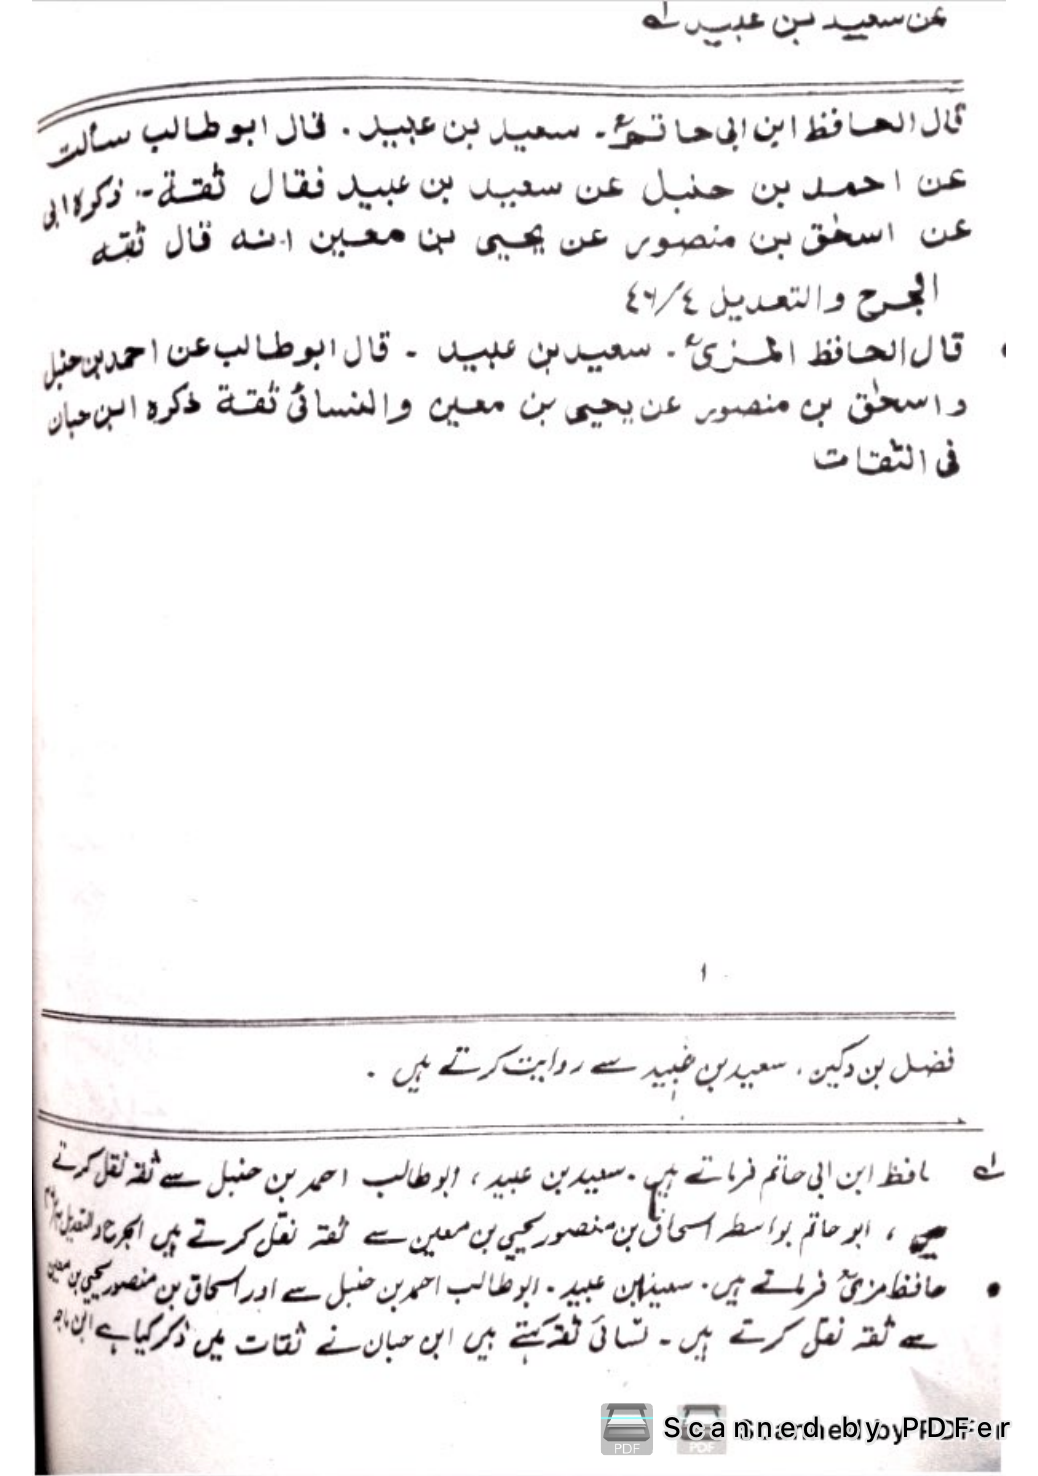 عن سعيد بن عبيد لہ
قال الحافظ ابن ابی حاتمؒ۔ سعيد بن عبيد۔ قال ابو طالب سألت
عن احمد بن حنبل عن سعيد بن عبيد فقال ثقة۔ ذكره ابی
عن اسحٰق بن منصور عن يحيى بن معين انه قال ثقه
الجرح والتعديل ٤/٤٦
• قال الحافظ المزیؒ۔ سعيد بن عبيد ۔ قال ابو طالب عن احمد بن حنبل
و اسحٰق بن منصور عن يحيى بن معين والنسائی ثقة ذكره ابن حبان
فی الثقات
۱
فضل بن دکین، سعید بن عبید سے روایت کرتے ہیں۔
لہ حافظ ابن ابی حاتم فرماتے ہیں۔ سعید بن عبید، ابو طالب احمد بن حنبل سے ثقہ نقل کرتے
ہیں، ابو حاتم بواسطہ اسحاق بن منصور یحیی بن معین سے ثقہ نقل کرتے ہیں الجرح والتعدیل
• حافظ مزیؒ فرماتے ہیں۔ سعید بن عبید۔ ابو طالب احمد بن حنبل سے اور اسحاق بن منصور یحیی بن معین
سے ثقہ نقل کرتے ہیں۔ نسائی ثقہ کہتے ہیں ابن حبان نے ثقات میں ذکر کیا ہے ابن ماجہ
Scanned by PDFer
Scanned by PDFer